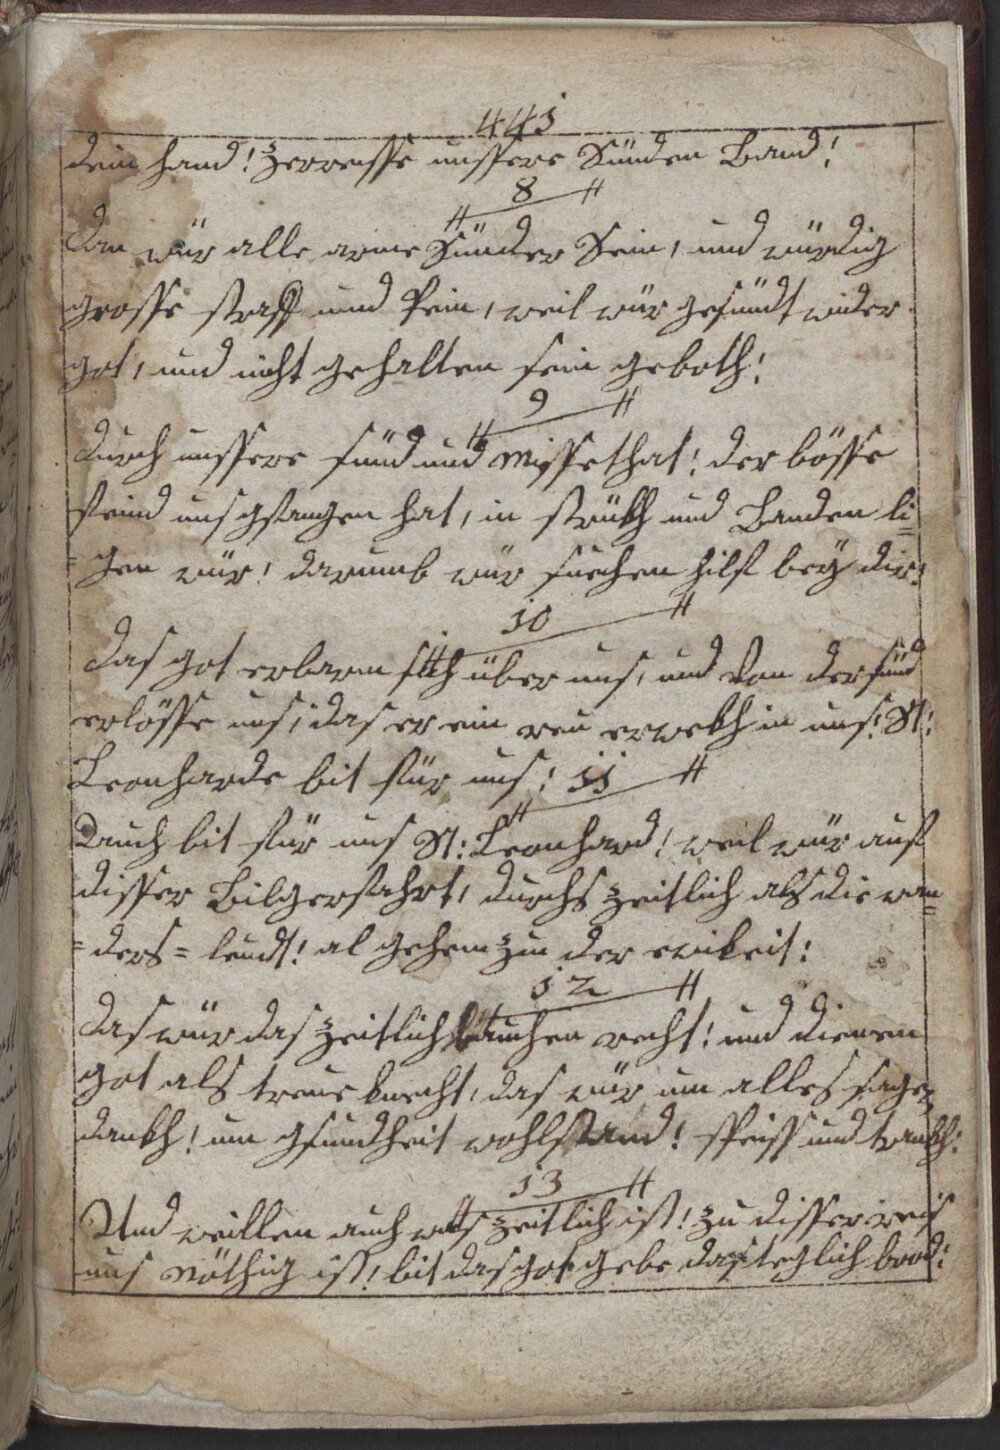 441
dein hand! zerreisse unssere Sünden Band!
8
Dan wür alle arme Sünder Sein, und würdig
grosse straff und Pein, weil wür gesündt wider
got, und nicht gehalten sein geboth!
9
Durch unssere sünd und Missethat! der bösse
feind uns gfangen hat, in strükh und Banden li=
=gen wür! darumb wür suechen hilf beÿ dir!
10
Das got erbarm sich über uns, und Von der sünd
erlösse uns, das er ein reu erwekh in uns! St:
Leonharde bit für uns! 11
Dauch bit für uns St: Leonhard! weil wür auf
disser Bilgerfahrt, durchs zeitlich als die wan=
=ders= leudt! al gehen zu der ewikeit!
12
Das wür das zeitlich brauchen recht! und dienen
got als treue knecht, das wür um alles sagen
dankh! um gsundheit wohlstand! speiss und trankh!
13
Und weillen auch was zeitlich ist! zu disser reis
uns Nöthig ist, bit das got gebe das teglich brod!